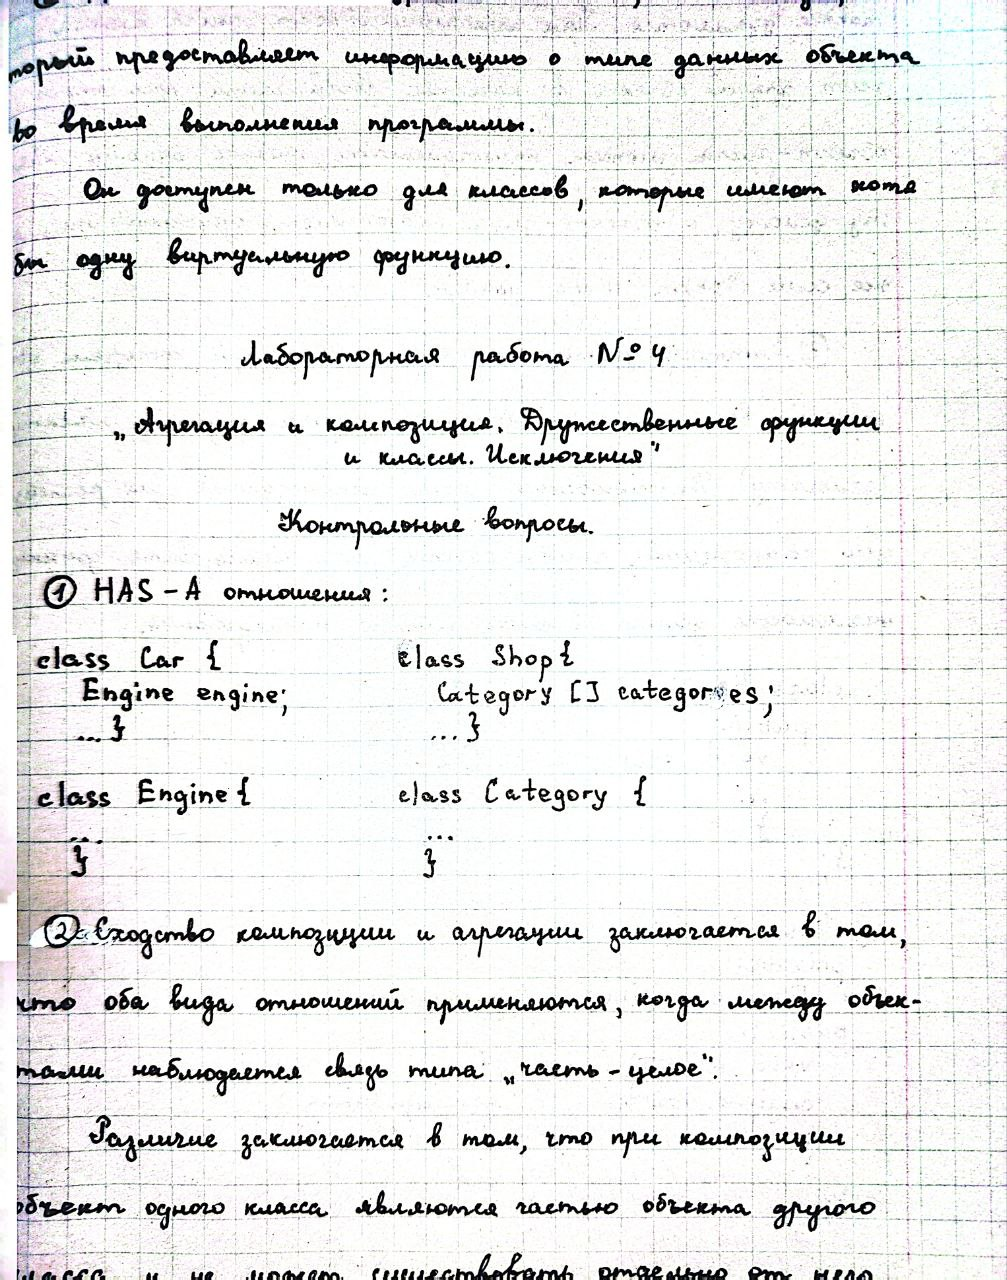 торый предоставляет информацию о типе данных объекта
во время выполнения программы.
Он доступен только для классов, которые имеют хотя
бы одну виртуальную функцию.
Лабораторная работа № 4
„Агрегация и композиция. Дружественные функции
и классы. Исключения"
Контрольные вопросы.
① HAS-A отношения:
class Car { class Shop {
Engine engine; Category [] categories;
... } ... }
class Engine { class Category {
... ...
} }
② Сходство композиции и агрегации заключается в том,
что оба вида отношений применяются, когда между объек-
тами наблюдается связь типа „часть-целое".
Различие заключается в том, что при композиции
объект одного класса являются частью объекта другого
класса и не может существовать отдельно от него